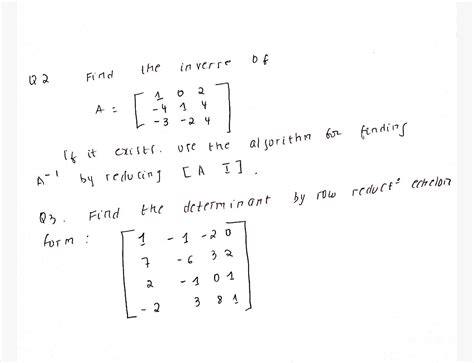 Q2 Find the inverse of
A = [ 1 0 2
-4 1 4
-3 -2 4 ]
If it exists. use the algorithm for finding
A⁻¹ by reducing [A I].
Q3. Find the determinant by row reductⁿ echelon
form : [ 1 -1 -2 0
7 -6 3 2
2 -1 0 1
-2 3 8 1 ]